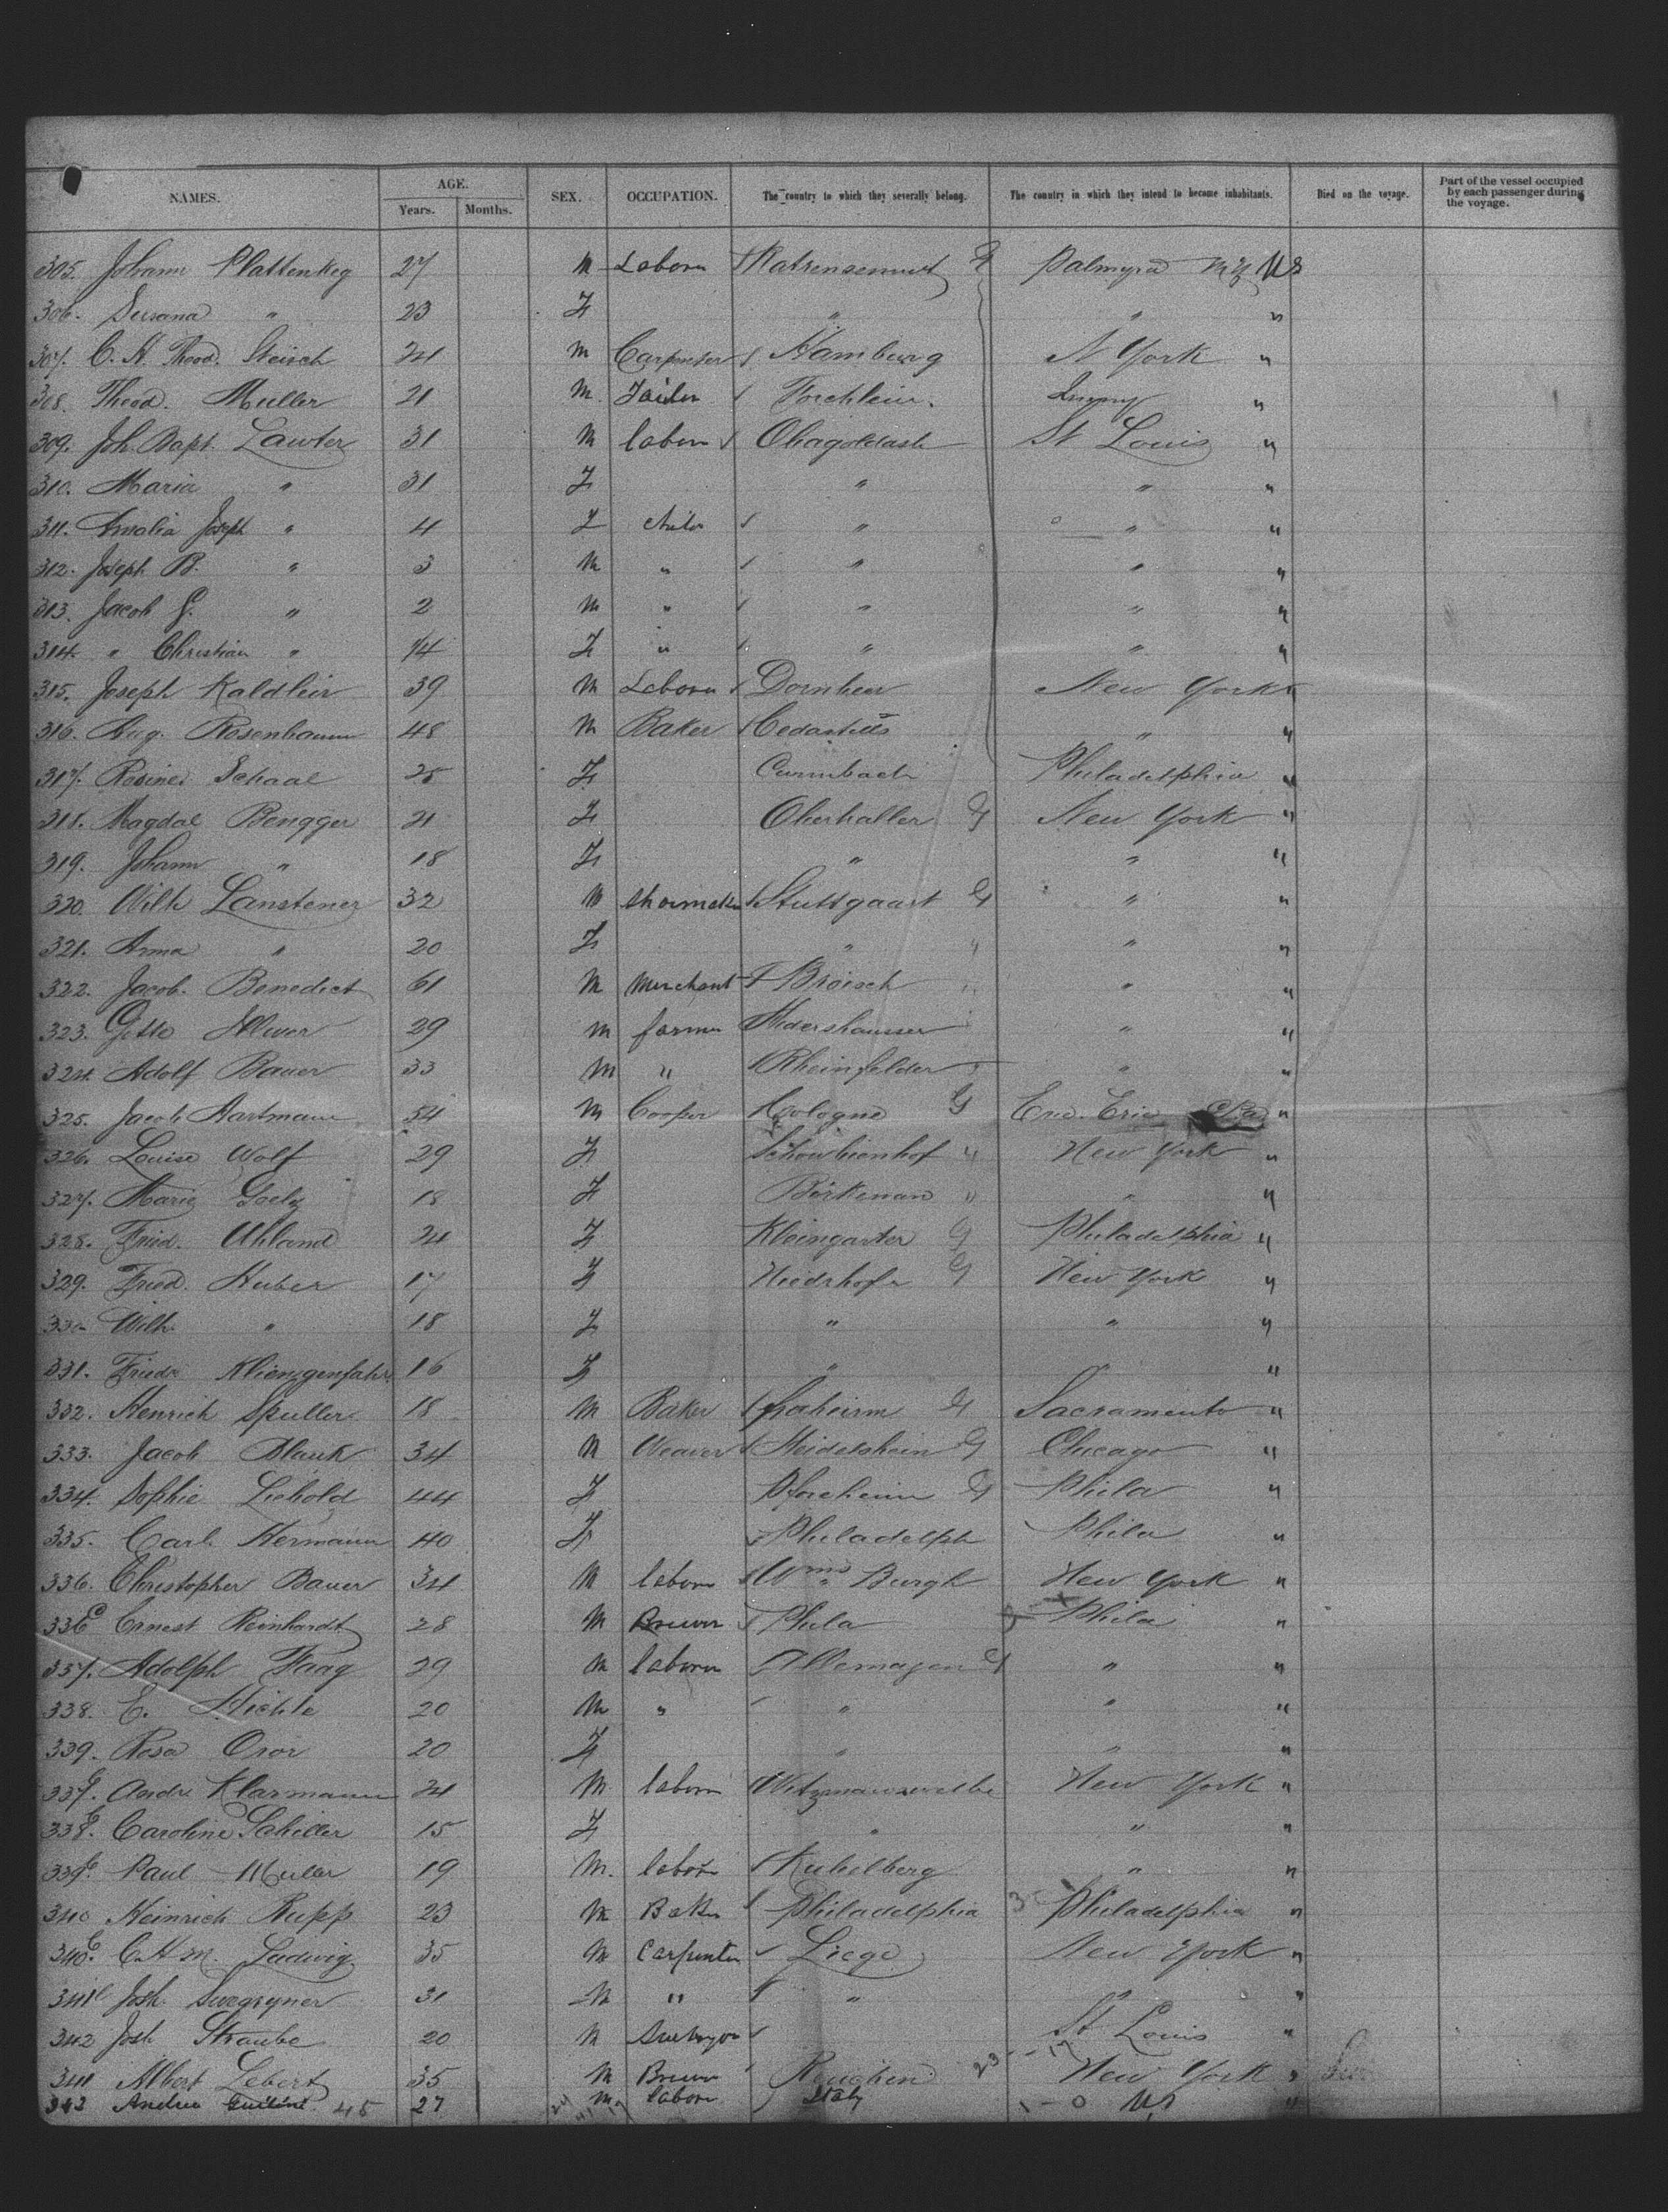 NAMES. AGE. Years. Months. SEX. OCCUPATION. The country to which they severally belong. The country in which they intend to become inhabitants. Died on the voyage. Part of the vessel occupied by each passenger during the voyage.
305. Johann Plattenkeg 27 M Labour Palmyra US
306. Susana " 23 F " " "
307. C. H. Theod. Steisch 24 M Carpenter Hamburg N York "
308. Theod. Muller 21 M. Tailer "
309. Joh. Bapt. Lawter 31 M labour St Louis "
310. Maria " 31 F " " "
311. Amalia Joseph " 4 F child " " "
312. Joseph B. " 3 M " " " "
313. Jacob G. " 2 M " " " "
314. " Christian " F " " " "
315. Joseph Kaldleir 39 M Labour New York "
316. Aug. Rosenbaum 48 M Baker " "
317. Rosine Schaal 25 F Curnbach Philadelphia "
318. Magdal Bengger 21 F Oberhaller G New York "
319. Johann " 18 F " " "
320. Wilh Lanstener 32 M shoemaker Stuttgaart G " "
321. Anna " 20 F " " " "
322. Jacob. Benedict 61 M Merchant Broisch " " "
323. 29 M farmer " "
324. Adolf Bauer 33 M " Rheinfelder " "
325. Jacob Hartmann 54 M Cooper Cologne G Erie Pa "
326. Louise Wolf 29 F " New York "
327. Marie Goelz 18 F Birkenau " " "
328. Fried. Uhland 24 F Kleingarter G Philadelphia "
329. Fried. Huber 17 F G New York "
330 Wilh. " 18 F " " "
331. Friedr 16 F " " "
332. Henrich Spuller 18 M Baker G Sacramento "
333. Jacob Blank 34 M Weaver Heidelshein G Chicago "
334. Sophie Liebold 44 F Pforcheim G Phila "
335. Carl. Hermann 40 F Philadelph Phila "
336. Christopher Bauer 34 M labour Wms Burgh New York "
336 Ernest Reinhardt 28 M Brewer Phila Phila "
337. Adolph Haag 29 M labourer Allemagen G " "
338. E. Hichle 20 M " " " "
339. Rosa Oror 20 F " " "
337. Andr. Klarmann 24 M labour New York "
338. Caroline Schiller 15 F " " "
339. Paul Muller 19 M. labour Kubelberg " "
340 Heinrich Rupp 23 M Baker Philadelphia Philadelphia "
340 C. H. M. Ludwig 35 M Carpenter Liege New York "
341 Josh. 31 M " " " "
342 Josh Straube 20 M St. Louis "
341 Albert Lebert 35 M Brewer New York "
343 Andreo 45 27 M labour Italy US "